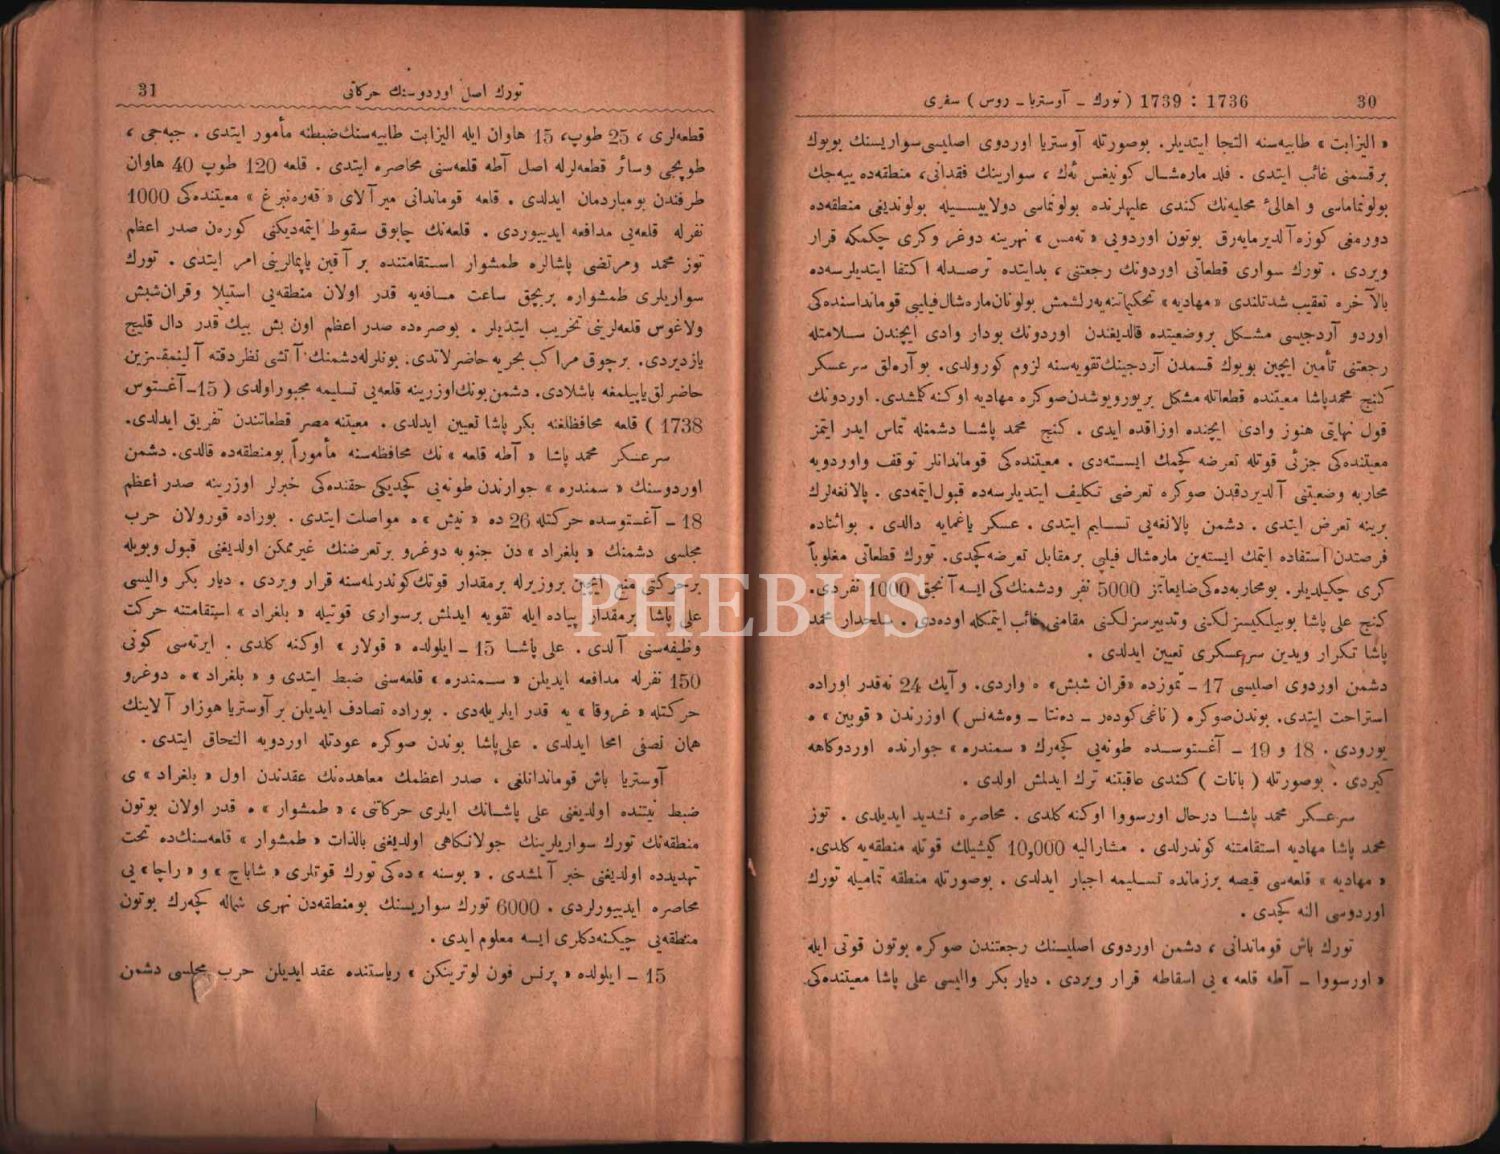 30
1736 : 1739 ( تورك ـ آوستريا ـ روس ) سفرى
« اليزابت » طابيه‌سنه التجا ايتديلر. بوصورتله آوستريا اوردوى اصليسى سواريسنك بويوك
برقسمنى غائب ايتدى . فلد ماره‌شال كونيغس ئه‌ك ، سوارينك فقدانى، منطقه‌ده ييه‌جك
بولونماماسى و اهالئ محليه‌نك كندى عليهلرنده بولونماسى دولاييسيله بولونديغى منطقه‌ده
دورمغى كوزه آلديرمايه‌رق بوتون اوردويى « ته‌مس » نهرينه دوغر وكرى چكمكه قرار
ويردى . تورك سوارى قطعاتى اوردونك رجعتنى ، بدايتده ترصدله اكتفا ايتديلرسه‌ده
بالآخره تعقيب شدتلندى «مهاديه» تحكيماتنه يرلشمش بولونان ماره‌شال فيليبى قوماندا‌سنده‌كى
اوردو آردجيسى مشكل بروضعيتده قالديغندن اوردونك بودار وادى ايچندن سلامتله
رجعتنى تأمين ايچين بويوك قسمدن آردجينك تقويه‌سنه لزوم كورولدى. بو آره‌لق سرعسكر
كنج محمدپاشا معيتنده قطعاتله مشكل بريورويوشدن صوكره مهاديه اوكنه كلمشدى. اوردونك
قول نهايتى هنوز وادى ايچنده اوزاقده ايدى . كنج محمد پاشا دشمنله تماس ايدر ايتمز
معيتنده‌كى جزئى قوتله تعرضه كچمك ايسته‌دى . معيتنده‌كى قوماندانلر توقف واوردويه
محاربه وضعيتنى آلديردقدن صوكره تعرضى تكليف ايتديلرسه‌ده قبول ايتمه‌دى . پالانغه‌لرك
برينه تعرض ايتدى . دشمن پالانغه‌يى تسليم ايتدى . عسكر ياغمايه دالدى . بواثناده
فرصتدن استفاده ايتمك ايسته‌ين ماره‌شال فيليبى برمقابل تعرضه كچدى. تورك قطعاتى مغلوباً
كرى چكيلديلر. بومحاربه‌ده‌كى ضايعاتمز 5000 نفر ودشمنك‌كى ايسه آنجق 1000 نفردى.
كنج على پاشا بوبيلكيسزلكنى وتدبيرسزلكنى مقامنى غائب ايتمكله اوده‌دى . سلحدار محمد
پاشا تكرار ويدين سرعسكرى تعيين ايدلدى .
دشمن اوردوى اصليسى 17 ـ تموزده «قران شبش» ه واردى. وآيك 24 نه‌قدر اوراده
استراحت ايتدى. بوندن‌صوكره ( ناغى‌كودەر ـ ده‌نتا ـ وه‌شه‌نس ) اوزرندن « قوبين » ه
يورودى . 18 و 19 ـ آغستوسده طونه‌يى كچه‌رك « سمندره » جوارنده اوردوكاهه
كيردى . بوصورتله ( بانات ) كندى عاقبتنه ترك ايدلمش اولدى .
سرعسكر محمد پاشا درحال اورسووا اوكنه كلدى . محاصره تشديد ايديلدى . توز
محمد پاشا مهاديه استقامتنه كوندرلدى . مشاراليه 10,000 كيشيلك قوتله منطقه‌يه كلدى.
« مهاديه » قلعه‌سى قيصه برزمانده تسليمه اجبار ايدلدى . بوصورتله منطقه تماميله تورك
اوردوسى النه كچدى .
تورك باش قوماندانى ، دشمن اوردوى اصليسنك رجعتندن صوكره بوتون قوتى ايله
« اورسووا ـ آطه قلعه » يى اسقاطه قرار ويردى . ديار بكر واليسى على پاشا معيتنده‌كى
31
تورك اصل اوردوسنك حركاتى
قطعه‌لرى ، 25 طوپ، 15 هاوان ايله اليزابت طابيه‌سنك ضبطنه مأمور ايتدى . جبه‌جى ،
طوپجى وسائر قطعه‌لرله اصل آطه قلعه‌سنى محاصره ايتدى . قلعه 120 طوپ 40 هاوان
طرفندن بومباردمان ايدلدى . قلعه قوماندانى ميرآلاى « قه‌ره‌نبرغ » معيتنده‌كى 1000
نفرله قلعه‌يى مدافعه ايدييوردى . قلعه‌نك چابوق سقوط ايتمه‌ديكنى كورەن صدر اعظم
توز محمد ومرتضى پاشالره طمشوار استقامتنده بر آقين ياپمالرينى امر ايتدى . تورك
سواريلرى طمشواره بربچق ساعت مسافه‌يه قدر اولان منطقه‌يى استيلا وقران‌شبش
ولاغوس قلعه‌لرينى تخريب ايتديلر . بوصره‌ده صدر اعظم اون بش بيك قدر دال قليج
يازديردى. برچوق مراكب بحريه حاضرلاتدى. بونلرله دشمنك آتشى نظردقته آلينمقسزين
حاضرلق ياپيلمغه باشلادى. دشمن بونك اوزرينه قلعه‌يى تسليمه مجبور اولدى ( 15ـ آغستوس
1738 ) قلعه محافظلغنه بكر پاشا تعيين ايدلدى . معيتنه مصر قطعاتندن تفريق ايدلدى.
سرعسكر محمد پاشا « آطه قلعه » نك محافظه‌سنه مأموراً بومنطقه‌ده قالدى. دشمن
اوردوسنك « سمندره » جوارندن طونه‌يى كچديكى حقنده‌كى خبرلر اوزرينه صدر اعظم
18 ـ آغستوسده حركتله 26 ده « نيش » ه مواصلت ايتدى . بوراده قورولان حرب
مجلسى دشمنك « بلغراد » دن جنوبه دوغرو برتعرضنك غيرممكن اولديغنى قبول وبويله
برحركتى منع ايچين بروزيرله برمقدار قوتك كوندرلمه‌سنه قرار ويردى . ديار بكر واليسى
على پاشا برمقدار پياده ايله تقويه ايدلمش برسوارى قوتيله « بلغراد » استقامتنه حركت
وظيفه‌سنى آلدى . على پاشا 15 ـ ايلولده « قولار » اوكنه كلدى . ايرته‌سى كونى
150 نفرله مدافعه ايديلن « سمندره » قلعه‌سنى ضبط ايتدى و « بلغراد » ه دوغرو
حركتله « غروقا » يه قدر ايلريله‌دى . بوراده تصادف ايديلن بر آوستريا هوزار آلاينك
همان نصفى امحا ايدلدى . على‌پاشا بوندن صوكره عودتله اوردويه التحاق ايتدى .
آوستريا باش قوماندانلغى ، صدر اعظمك معاهده‌نك عقدندن اول « بلغراد » ى
ضبط نيتنده اولديغنى على پاشانك ايلرى حركاتنى ، « طمشوار » ه قدر اولان بوتون
منطقه‌نك تورك سواريلرينك جولانكاهى اولديغنى بالذات « طمشوار » قلعه‌سنك‌ده تحت
تهديدده اولديغنى خبر آلمشدى . « بوسنه » ده‌كى تورك قوتلرى « شاباچ » و « راچا » يى
محاصره ايدييورلردى . 6000 تورك سواريسنك بومنطقه‌دن نهرى شماله كچه‌رك بوتون
منطقه‌يى چيكنه‌دكلرى ايسه معلوم ايدى .
15 ـ ايلولده « پرنس فون لوترينكن » رياستنده عقد ايديلن حرب مجلسى دشمن
PHEBUS